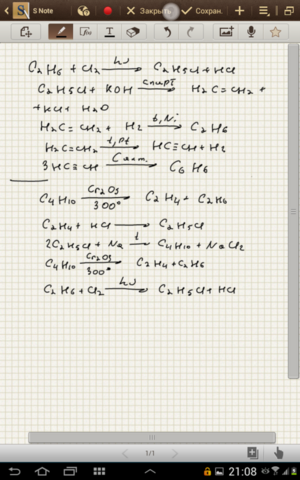 S Note
Закрыть
Сохран.
C2H6 + Cl2 —hν→ C2H5Cl + HCl
C2H5Cl + KOH —спирт→ H2C=CH2 +
+ KCl + H2O
H2C=CH2 + H2 —t, Ni→ C2H6
H2C=CH2 —t, Pt→ HC≡CH + H2
3HC≡CH —C акт.→ C6H6
C4H10 —Cr2O3 300°→ C2H4 + C2H6
C2H4 + HCl → C2H5Cl
2C2H5Cl + Na —t→ C4H10 + NaCl2
C4H10 —Cr2O3 300°→ C2H4 + C2H6
C2H6 + Cl2 —hν→ C2H5Cl + HCl
1/1
21:08